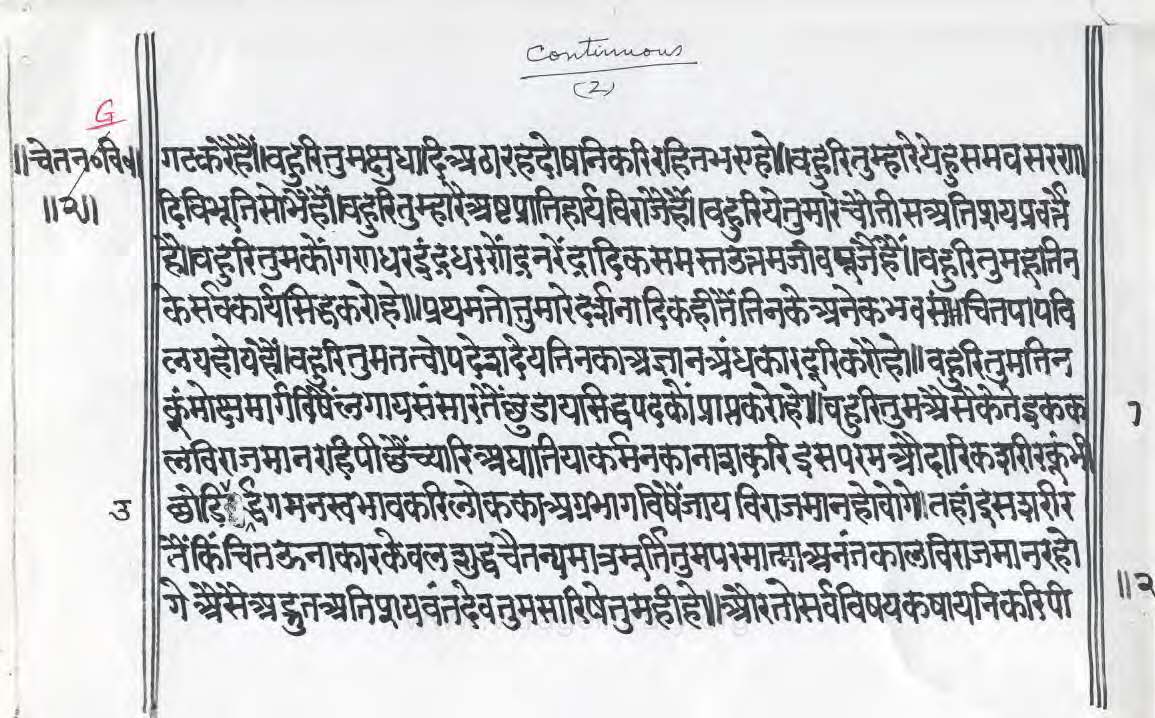 Continuous
(2)
G
॥चेतन०वि०॥
॥२॥
गटकरैहैं॥वहुरितुमक्षुधादिअठारहदोषनिकरिरहितभएहो॥वहुरितुम्हारेयेहुसमवसररा॥
दिविभूतिसोभैहैं॥वहुरितुम्हारैअष्टप्रातिहार्यविराजैहैं॥वहुरियेतुमारेचौतीसअतिशयप्रवर्त्तै
है॥वहुरितुमकोंगणधरइंद्रधरणेंद्रनरेंद्रादिकसमस्तउत्तमजीवपूजैंहैं॥वहुरितुमहूतिन
केसर्वकार्यसिद्धकरोहो॥प्रथमतोतुमारेदर्शनादिकहीतैंतिनकेअनेकभवसंचितपापवि
लयहोयहैं॥वहुरितुमतत्वोपदेशदेयतिनकाअज्ञानअंधकारदूरिकरोहो॥वहुरितुमतिन
कूंमोक्षमार्गविषैंलगायसंसारतैंछुडायसिद्धपदकोंप्राप्तकरोहो॥वहुरितुमअैसैकेतेइकक
लविराजमानरहिपीछैंच्यारिअघातियाकर्मनकानाशकरिइसपरमऔदारिकशरीरकूंभी
छोडि र्द्धगमनस्वभावकरिलोककाअग्रभागविषैंजाय विराजमानहोवोगे॥तहांइसशरीर
तैंकिंचितऊनाकारकेवलशुद्धचैतन्यमात्रमूर्तितुमपरमात्माअनंतकालविराजमानरहो
गे अैसेअद्भुतअतिशयवंतदेवतुमसारिषेतुमहीहो॥औरतोसर्वविषयकषायनिकरिपी
१
उ
॥२